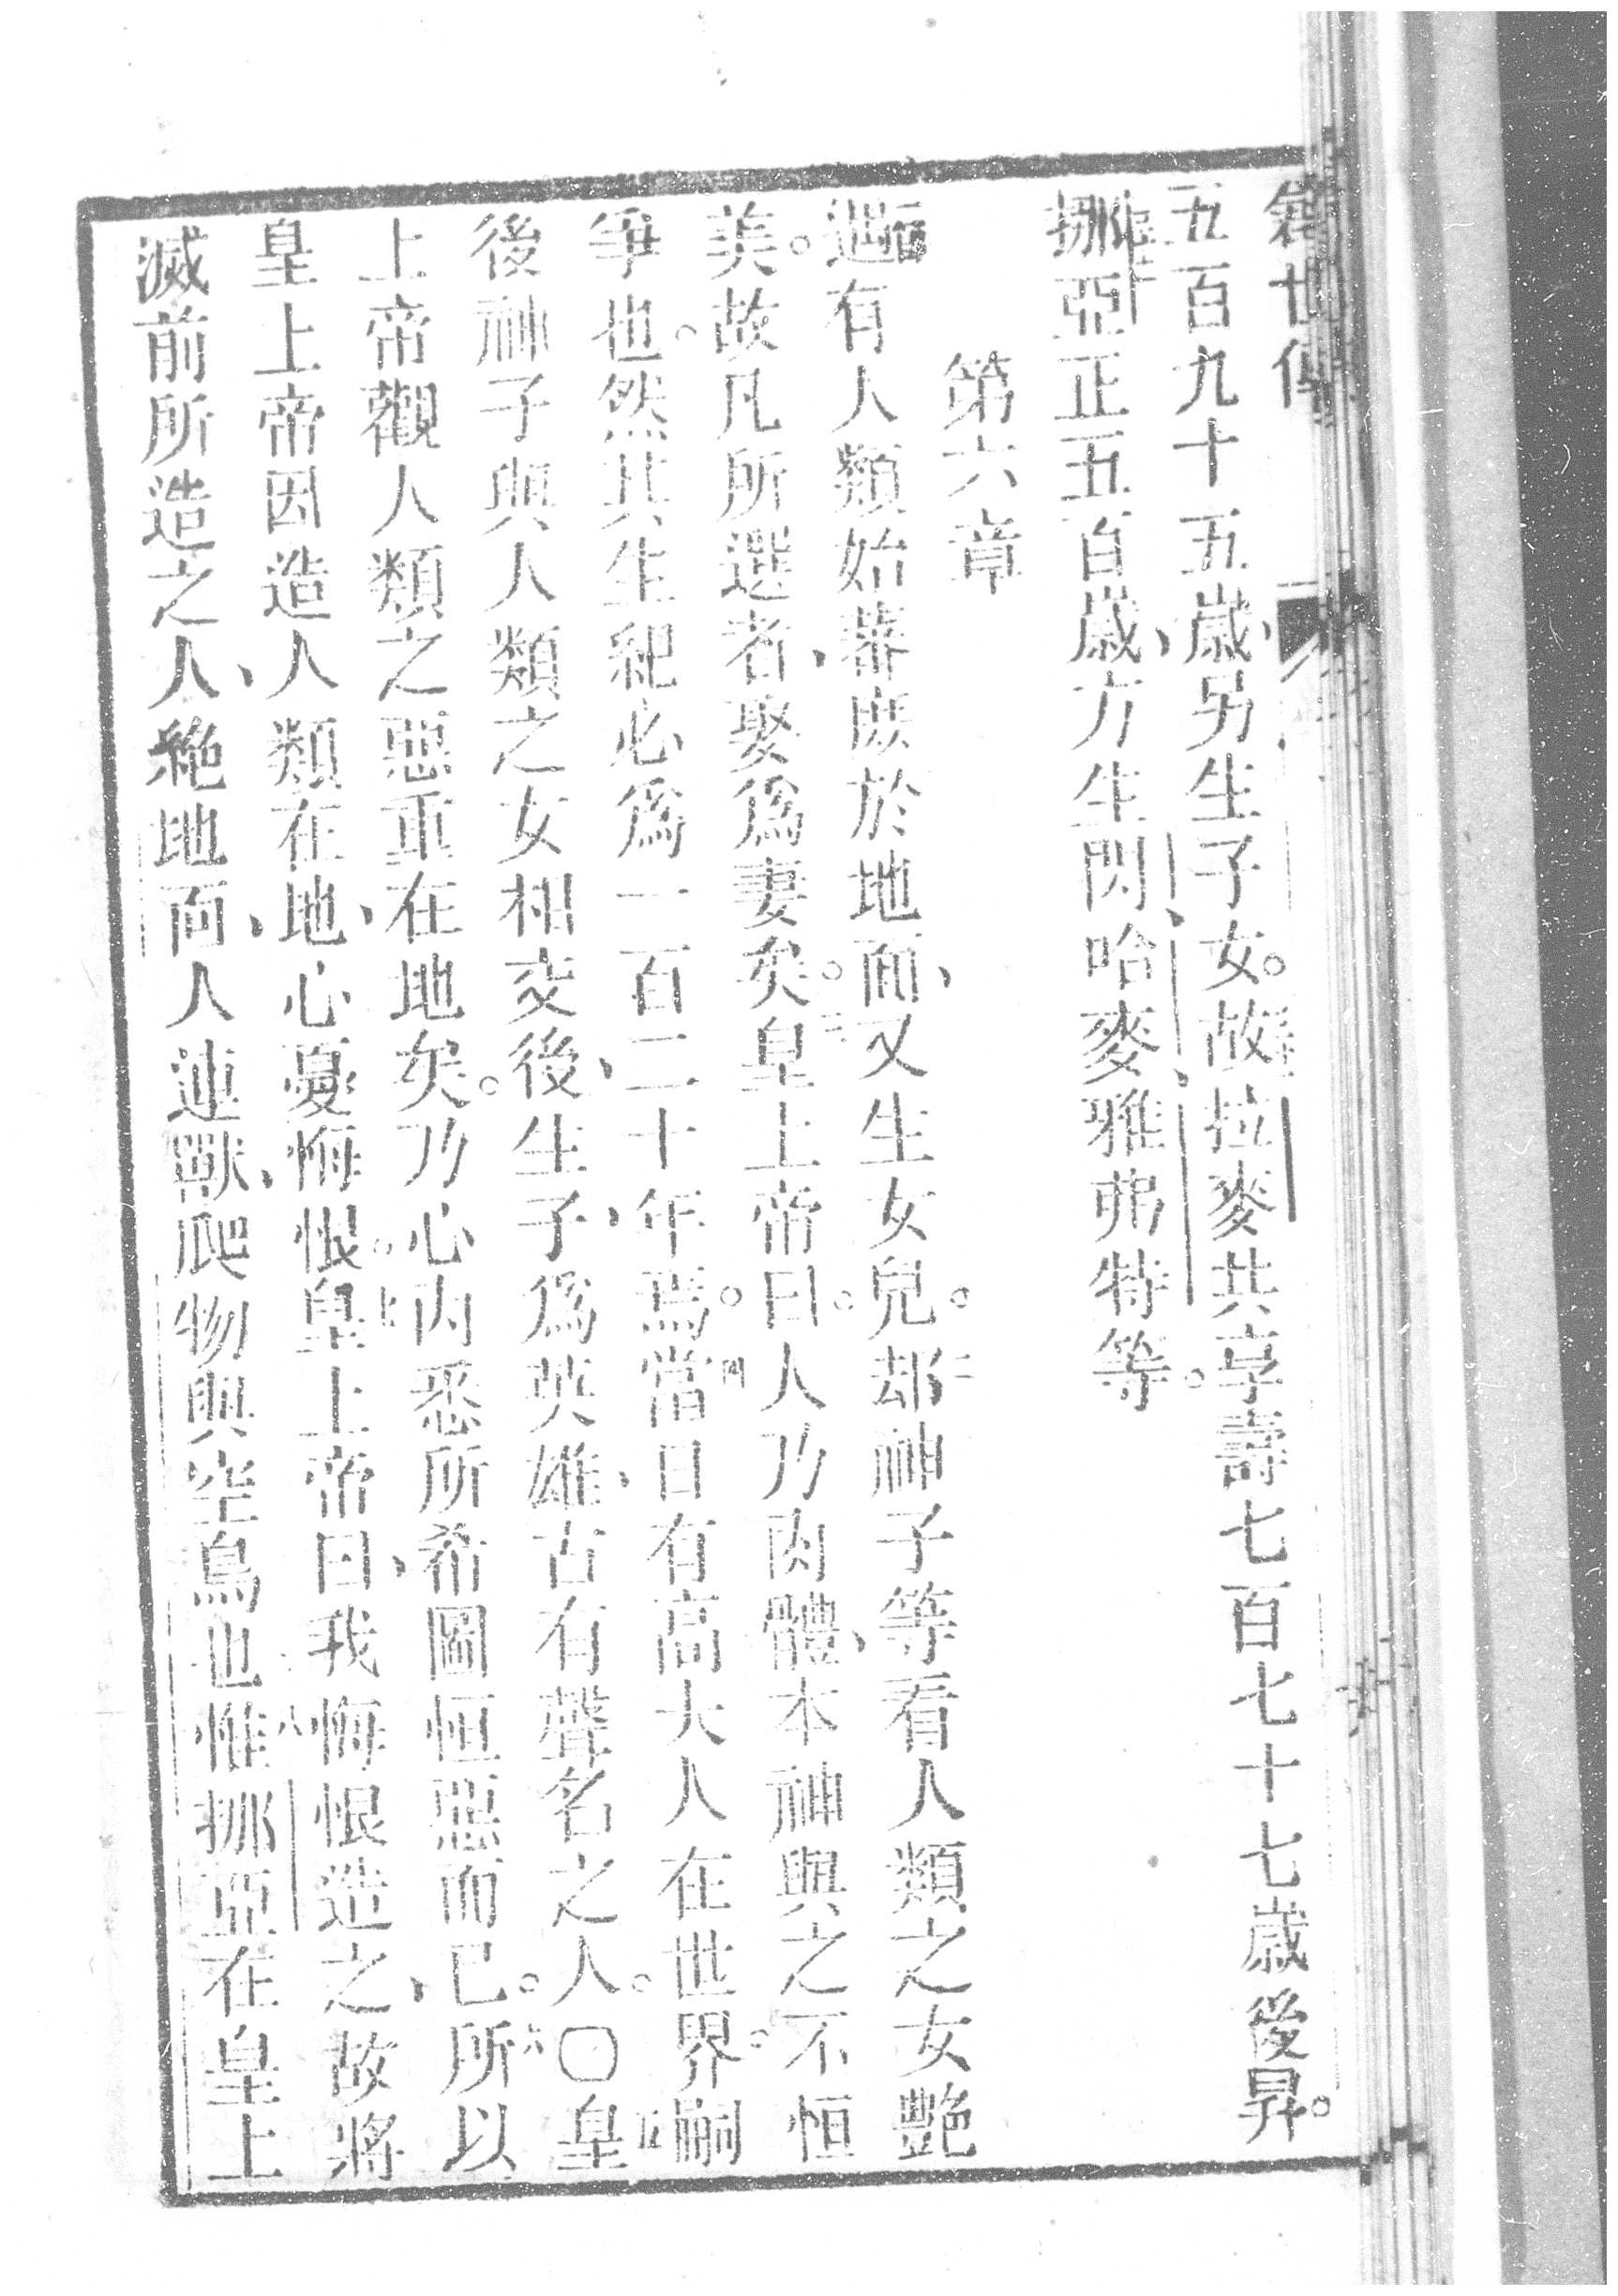 五百九十五歲、另生子女。故拉麥共享壽七百七十七歲後昇。
挪亞正五百歲、方生閃、哈麥、雅弗特等。
第六章
遇有人類始蕃庶於地面、又生女兒。二却神子等看人類之女艶
美。故凡所選者、娶爲妻矣。三皇上帝曰。人乃肉體、本神與之不恒
爭也。然其生紀必爲一百二十年焉。四當日有高大人在世界。嗣
後神子與人類之女相交、後生子、爲英雄、古有聲名之人。〇五皇
上帝觀人類之惡重在地矣。乃心內悉所希圖恒惡而已。六所以
皇上帝因造人類在地、心憂悔恨。七皇上帝曰、我悔恨造之、故將
滅前所造之人、絶地面、人連獸、爬物與空鳥也。八惟挪亞在皇上